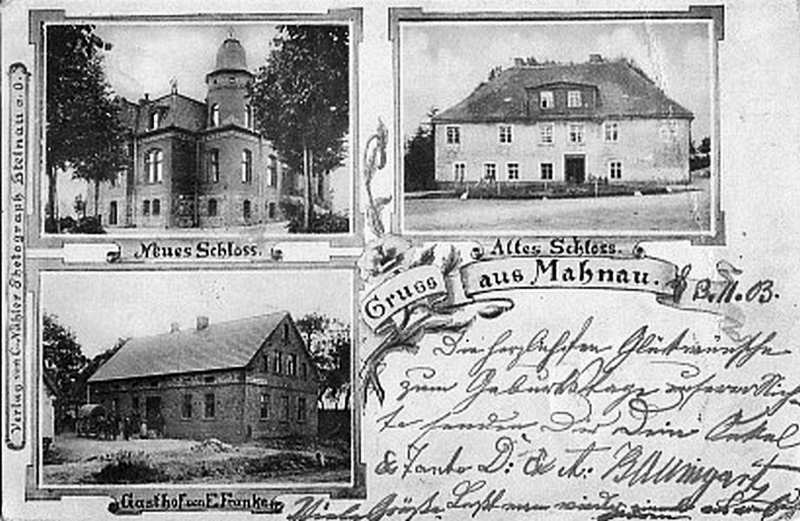 Verlag von C. Nähler Photograph Steinau a. O.
Neues Schloss.
Altes Schloss.
Gruss aus Mahnau.
B. 11. 03.
Die herzlichsten Glückwünsche
zum Geburtstage
senden Dir Dein Onkel
& Tante D: & A: Baumgart
Gasthof von E. Franke
Viele Grüße